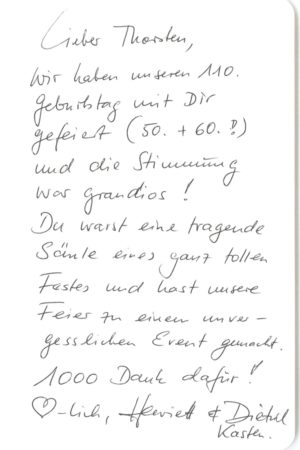 Lieber Thorsten,
wir haben unseren 110.
Geburtstag mit Dir
gefeiert (50. + 60.!!)
und die Stimmung
war grandios!
Du warst eine tragende
Säule eines ganz tollen
Festes und hast unsere
Feier zu einem unver-
gesslichen Event gemacht.
1000 Dank dafür!!
♡-lich, &
Kasten.